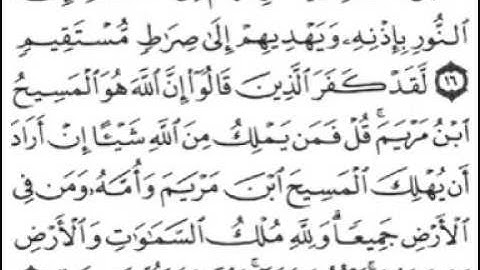 ٱلنُّورِ بِإِذْنِهِۦ وَيَهْدِيهِمْ إِلَىٰ صِرَٰطٍ مُّسْتَقِيمٍ
۝١٦ لَّقَدْ كَفَرَ ٱلَّذِينَ قَالُوٓا۟ إِنَّ ٱللَّهَ هُوَ ٱلْمَسِيحُ
ٱبْنُ مَرْيَمَ ۚ قُلْ فَمَن يَمْلِكُ مِنَ ٱللَّهِ شَيْـًٔا إِنْ أَرَادَ
أَن يُهْلِكَ ٱلْمَسِيحَ ٱبْنَ مَرْيَمَ وَأُمَّهُۥ وَمَن فِى
ٱلْأَرْضِ جَمِيعًا ۗ وَلِلَّهِ مُلْكُ ٱلسَّمَٰوَٰتِ وَٱلْأَرْضِ